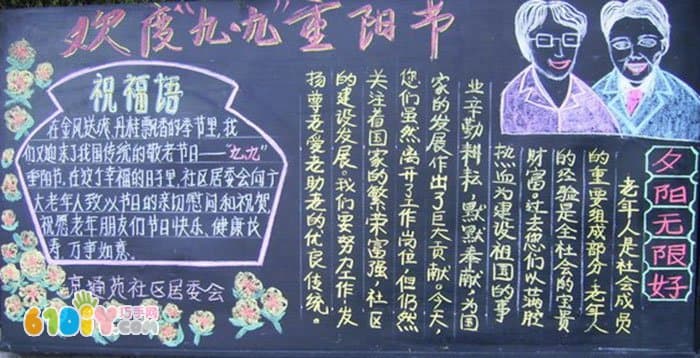 欢度"九·九"重阳节
祝福语
在金风送爽、丹桂飘香的季节里,我
们又迎来了我国传统的敬老节日——"九·九"
重阳节.在这个幸福的日子里,社区居委会向广
大老年人致以节日的亲切慰问和祝贺,
祝愿老年朋友们节日快乐、健康长
寿、万事如意.
京通苑社区居委会
夕阳无限好
老年人是社会成员
的重要组成部分.老年人
的经验是全社会的宝贵
财富.过去您们以满腔
热血为建设祖国的事
业辛勤耕耘、默默奉献,为国
家的发展作出了巨大贡献.今天,
您们虽然离开了工作岗位,但仍然
关注着国家的繁荣富强,社区
的建设发展.我们要努力工作,发
扬尊老爱老助老的优良传统.
61DIY.com
巧手网